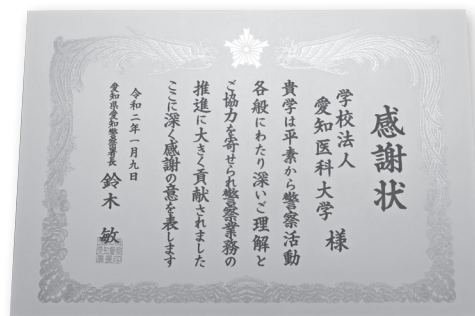 感謝状
学校法人
愛知医科大学 様
貴学は平素から警察活動
各般にわたり深いご理解と
ご協力を寄せられ警察業務の
推進に大きく貢献されました
ここに深く感謝の意を表します
令和二年一月九日
愛知県愛知警察署長 鈴木 敏